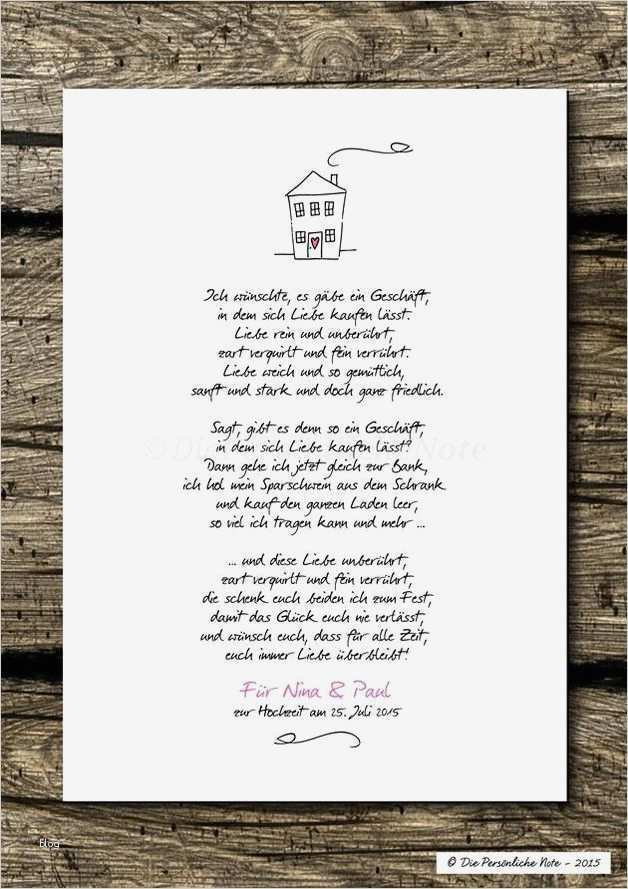 Ich wünschte, es gäbe ein Geschäft,
in dem sich Liebe kaufen lässt.
Liebe rein und unberührt,
zart verquirlt und fein verrührt.
Liebe weich und so gemütlich,
sanft und stark und doch ganz friedlich.
Sagt, gibt es denn so ein Geschäft,
in dem sich Liebe kaufen lässt?
Dann gehe ich jetzt gleich zur Bank,
ich hol mein Sparschwein aus dem Schrank
und kauf den ganzen Laden leer,
so viel ich tragen kann und mehr ...
... und diese Liebe unberührt,
zart verquirlt und fein verrührt,
die schenk euch beiden ich zum Fest,
damit das Glück euch nie verlässt,
und wünsch euch, dass für alle Zeit,
euch immer Liebe überbleibt!
Für Nina & Paul
zur Hochzeit am 25. Juli 2015
Blog
© Die Persönliche Note - 2015